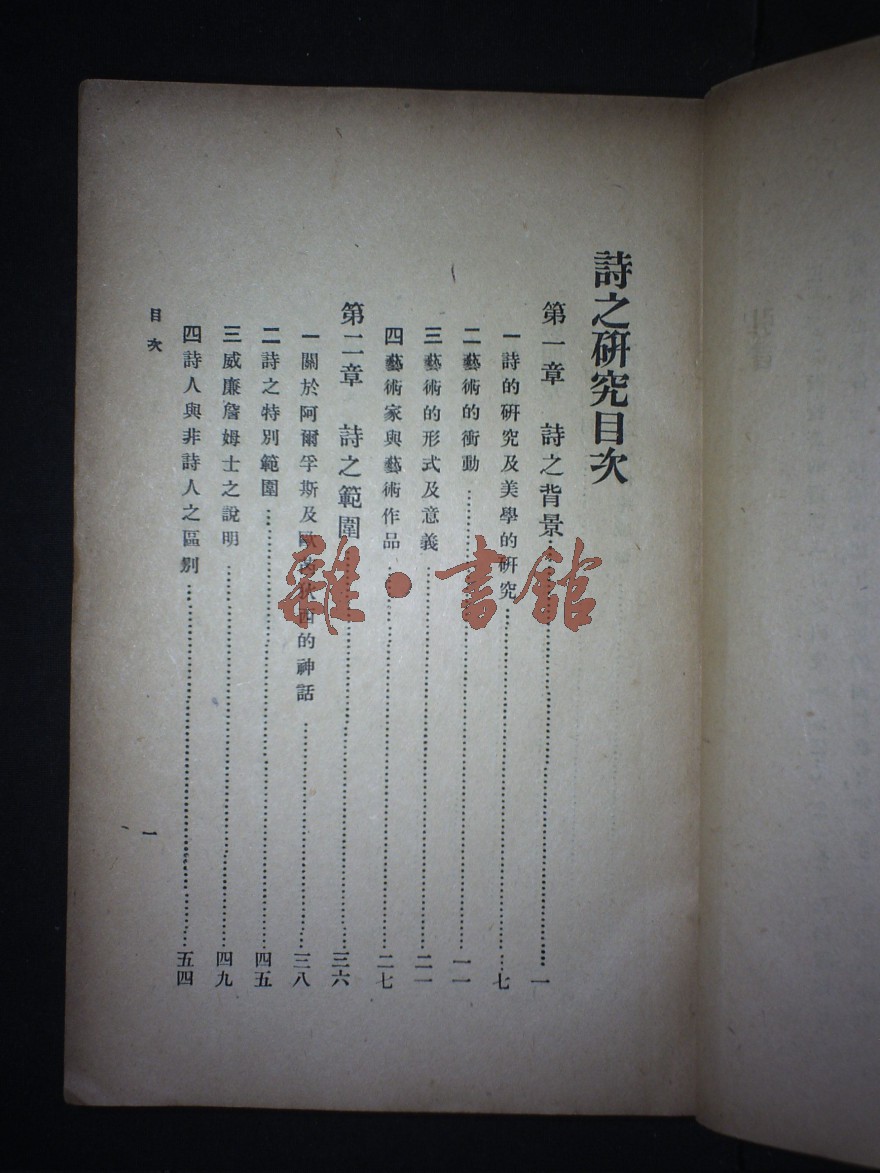 詩之研究目次
第一章 詩之背景……一
一 詩的研究及美學的研究……七
二 藝術的衝動……一一
三 藝術的形式及意義……二一
四 藝術家與藝術作品……二七
第二章 詩之範圍……三六
一 關於阿爾孚斯及歐 的神話……三八
二 詩之特別範圍……四五
三 威廉詹姆士之說明……四九
四 詩人與非詩人之區別……五四
目次
一
雜·書館